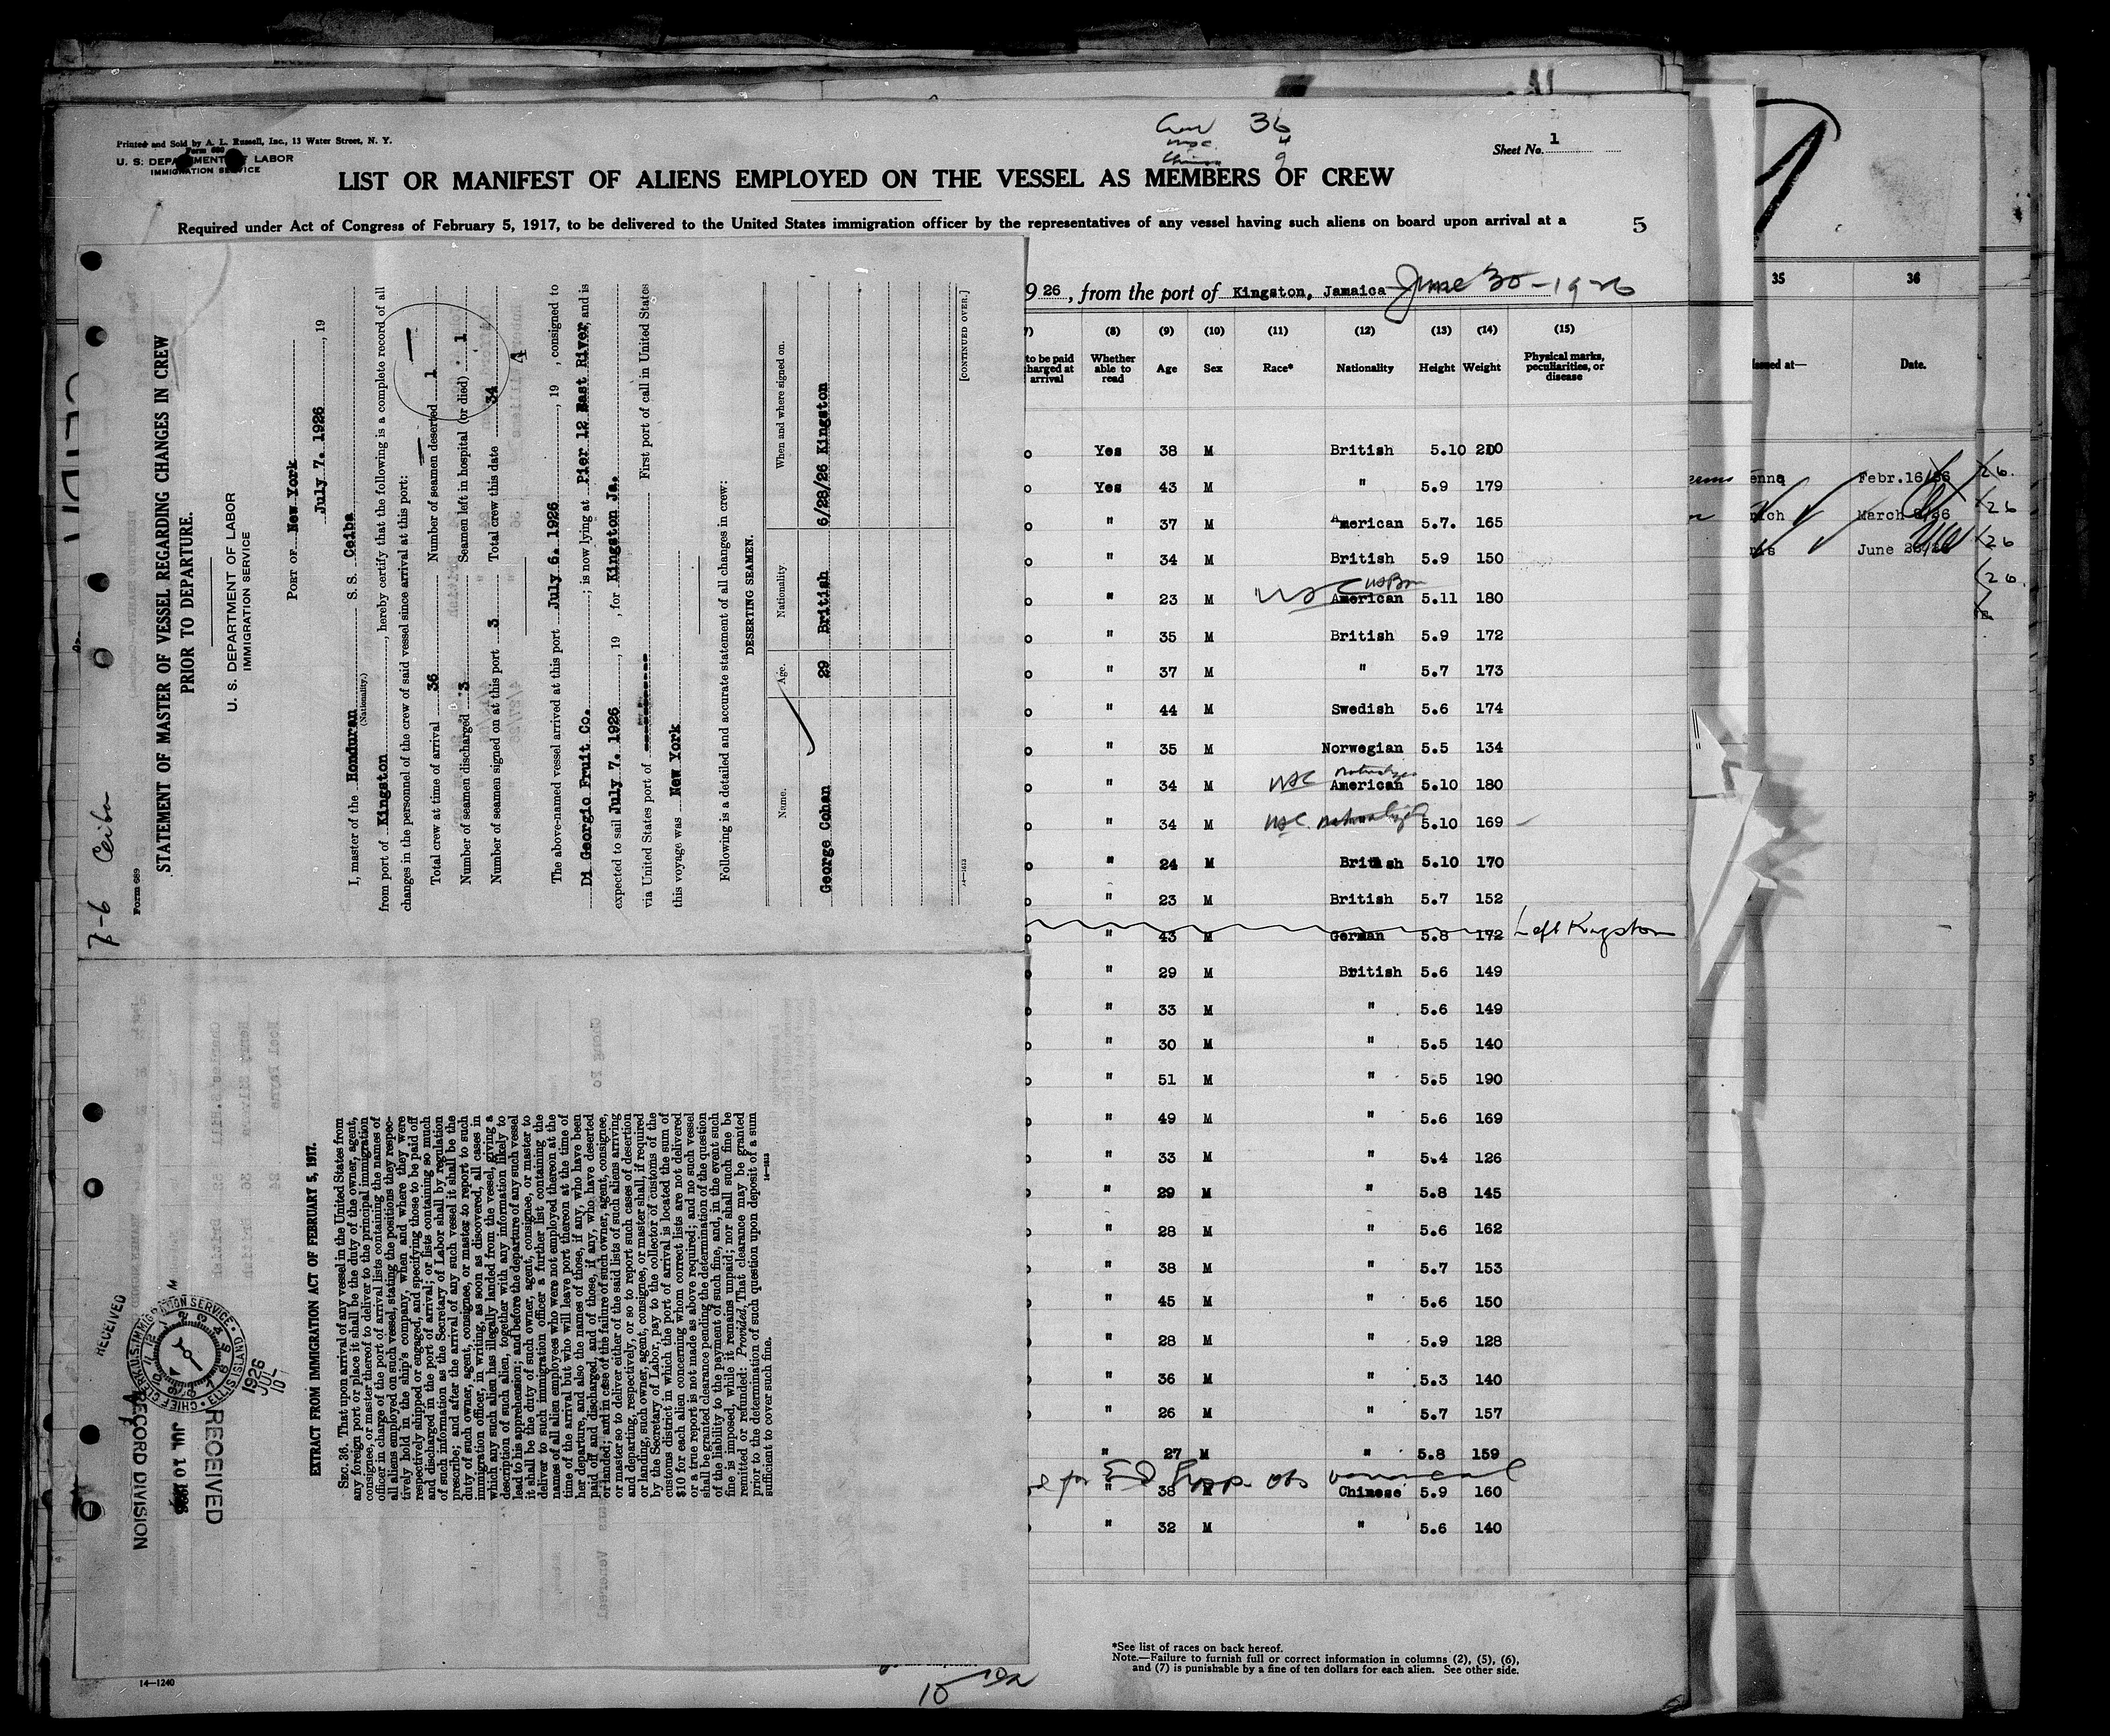 Printed and Sold by A. L. Russell, Inc., 13 Water Street, N. Y.
Form 680
U. S. DEPARTMENT OF LABOR
IMMIGRATION SERVICE
Crew 36
USC. 4
Chinese 9
Sheet No. 1
LIST OR MANIFEST OF ALIENS EMPLOYED ON THE VESSEL AS MEMBERS OF CREW
Required under Act of Congress of February 5, 1917, to be delivered to the United States immigration officer by the representatives of any vessel having such aliens on board upon arrival at a
5
9 26, from the port of Kingston, Jamaica June 30-1926
(8) (9) (10) (11) (12) (13) (14) (15)
to be paid Whether Physical marks,
charged at able to Age Sex Race* Nationality Height Weight peculiarities, or
arrival read disease
Yes 38 M British 5.10 210
Yes 43 M " 5.9 179
" 37 M American 5.7. 165
" 34 M British 5.9 150
" 23 M USC American 5.11 180
" 35 M British 5.9 172
" 37 M " 5.7 173
" 44 M Swedish 5.6 174
" 35 M Norwegian 5.5 134
" 34 M USC American 5.10 180
" 34 M USC. naturalized 5.10 169
" 24 M British 5.10 170
" 23 M British 5.7 152
" 43 M German 5.8 172 Left Kingston
" 29 M British 5.6 149
" 33 M " 5.6 149
" 30 M " 5.5 140
" 51 M " 5.5 190
" 49 M " 5.6 169
" 33 M " 5.4 126
" 29 M " 5.8 145
" 28 M " 5.6 162
" 38 M " 5.7 153
" 45 M " 5.6 150
" 28 M " 5.9 128
" 36 M " 5.3 140
" 26 M " 5.7 157
" 27 M " 5.8 159
" 38 M Chinese 5.9 160
" 32 M " 5.6 140
*See list of races on back hereof.
Note.—Failure to furnish full or correct information in columns (2), (5), (6),
and (7) is punishable by a fine of ten dollars for each alien. See other side.
14—1240
35 36
Issued at— Date.
Febr.16/26
March
June
7-6 Ceiba
Form 689
STATEMENT OF MASTER OF VESSEL REGARDING CHANGES IN CREW
PRIOR TO DEPARTURE.
U. S. DEPARTMENT OF LABOR
IMMIGRATION SERVICE
PORT OF New York
July 7. 1926, 19
I, master of the Honduran S. S. Ceiba
(Nationality.)
from port of Kingston, hereby certify that the following is a complete record of all
changes in the personnel of the crew of said vessel since arrival at this port:
Total crew at time of arrival 36 Number of seamen deserted 1
Number of seamen discharged 3 Seamen left in hospital (or died) 1
Number of seamen signed on at this port 3 Total crew this date 34
4
The above-named vessel arrived at this port July 6. 1926, 19 , consigned to
Di Georgio Fruit Co. ; is now lying at Pier 12 East River, and is
expected to sail July 7. 1926, 19 , for Kingston Ja.
via United States port of First port of call in United States
this voyage was New York
Following is a detailed and accurate statement of all changes in crew:
DESERTING SEAMEN.
Name. Age. Nationality When and where signed on.
George Cohan 29 British 6/28/26 Kingston
14—1613 [CONTINUED OVER.]
RECEIVED
CHIEF CLERK U.S. IMMIGRATION SERVICE • ELLIS ISLAND
1926 JUL 10
RECORD DIVISION
JUL 10 1926
RECEIVED
EXTRACT FROM IMMIGRATION ACT OF FEBRUARY 5, 1917.
SEC. 36. That upon arrival of any vessel in the United States from
any foreign port or place it shall be the duty of the owner, agent,
consignee, or master thereof to deliver to the principal immigration
officer in charge of the port of arrival lists containing the names of
all aliens employed on such vessel, stating the positions they respec-
tively hold in the ship's company, when and where they were
respectively shipped or engaged, and specifying those to be paid off
and discharged in the port of arrival; or lists containing so much
of such information as the Secretary of Labor shall by regulation
prescribe; and after the arrival of any such vessel it shall be the
duty of such owner, agent, consignee, or master to report to such
immigration officer, in writing, as soon as discovered, all cases in
which any such alien has illegally landed from the vessel, giving a
description of such alien, together with any information likely to
lead to his apprehension; and before the departure of any such vessel
it shall be the duty of such owner, agent, consignee, or master to
deliver to such immigration officer a further list containing the
names of all alien employees who were not employed thereon at the
time of the arrival but who will leave port thereon at the time of
her departure, and also the names of those, if any, who have been
paid off and discharged, and of those, if any, who have deserted
or landed; and in case of the failure of such owner, agent, consignee,
or master so to deliver either of the said lists of such aliens arriving
and departing, respectively, or so to report such cases of desertion
or landing, such owner, agent, consignee, or master shall, if required
by the Secretary of Labor, pay to the collector of customs of the
customs district in which the port of arrival is located the sum of
$10 for each alien concerning whom correct lists are not delivered
or a true report is not made as above required; and no such vessel
shall be granted clearance pending the determination of the question
of the liability to the payment of such fine, and, in the event such
fine is imposed, while it remains unpaid; nor shall such fine be
remitted or refunded: Provided, That clearance may be granted
prior to the determination of such question upon deposit of a sum
sufficient to cover such fine. 14—1613